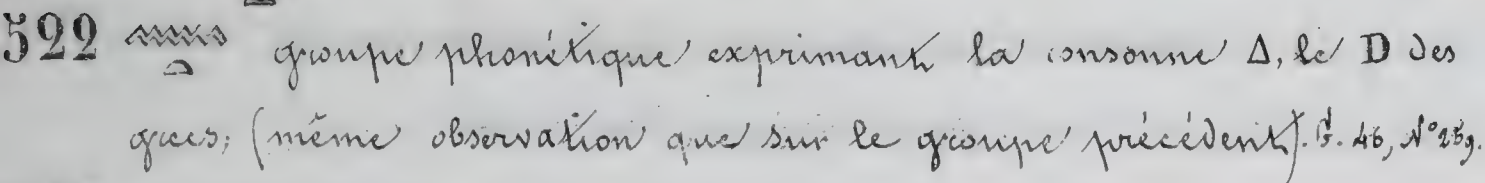 522 𓈖𓏏 groupe phonétique exprimant la consonne Δ, le D des
grecs; (même observation que sur le groupe précédent). G. 46, N° 259.